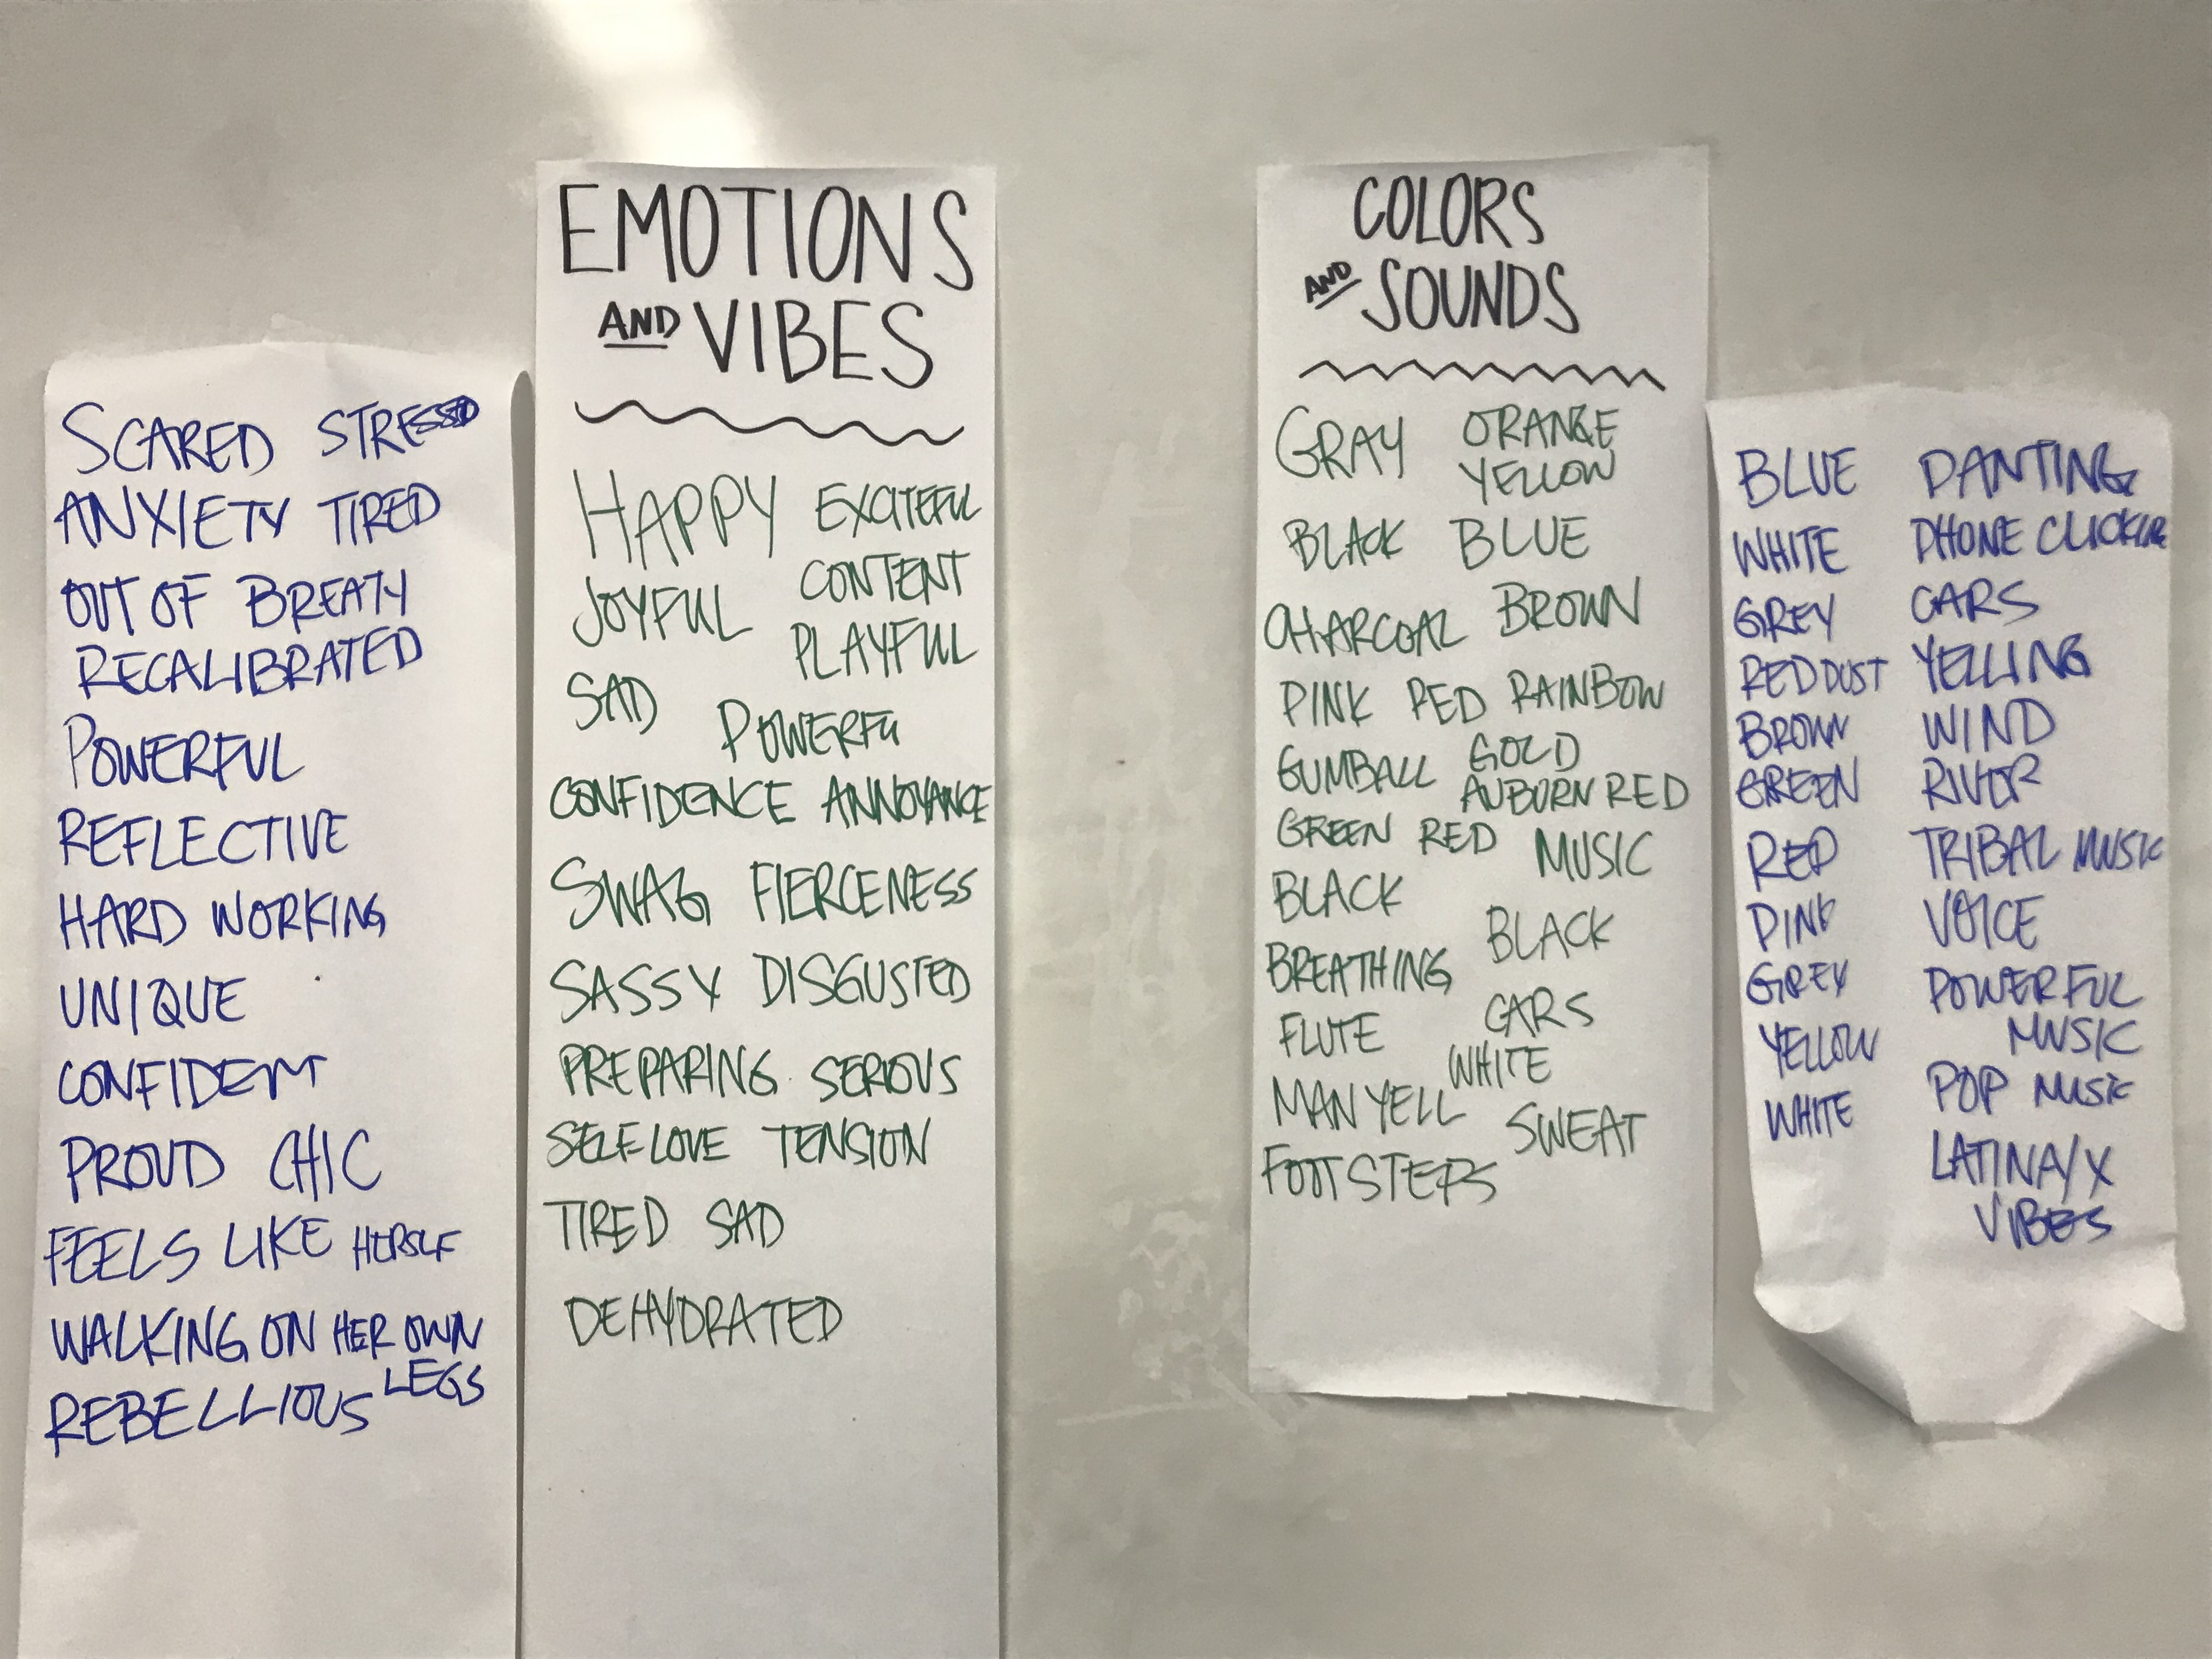 SCARED STRESSED
ANXIETY TIRED
OUT OF BREATH
RECALIBRATED
POWERFUL
REFLECTIVE
HARD WORKING
UNIQUE
CONFIDENT
PROUD CHIC
FEELS LIKE HERSELF
WALKING ON HER OWN
LEGS
REBELLIOUS
EMOTIONS
AND VIBES
HAPPY EXCITEFUL
CONTENT
JOYFUL
PLAYFUL
SAD
POWERFU
CONFIDENCE ANNOYANCE
SWAG FIERCENESS
SASSY DISGUSTED
PREPARING SERIOUS
SELF-LOVE TENSION
TIRED SAD
DEHYDRATED
COLORS
AND SOUNDS
GRAY ORANGE
YELLOW
BLACK BLUE
CHARCOAL BROWN
PINK RED RAINBOW
GUMBALL GOLD
AUBURN RED
GREEN RED MUSIC
BLACK
BLACK
BREATHING
CARS
FLUTE
WHITE
MAN YELL
SWEAT
FOOTSTEPS
BLUE PANTING
WHITE PHONE CLICKING
GREY CARS
RED DUST YELLING
BROWN WIND
GREEN RIVER
RED TRIBAL MUSIC
PINK VOICE
GREY POWERFUL
YELLOW MUSIC
WHITE POP MUSIC
LATINA/X
VIBES